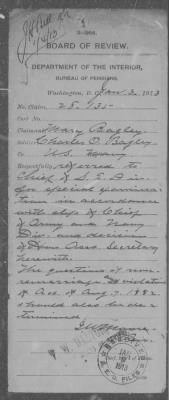 3-1904.
BOARD OF REVIEW.
DEPARTMENT OF THE INTERIOR,
BUREAU OF PENSIONS,
Washington, D. C., Jan 2, 1913
No. Claim, 28,735
Cert. No.
Claimant Mary Bagley
Soldier Charles O. Bagley
U.S. Navy
Respectfully referred to
Chief of S. E. Div.
for special examina-
tion in accordance
with slip of Chief
of Army and Navy
Div. and decision
of Hon. Asst. Secretary
herewith.
The question of non-
remarriage & violation
of Act of Aug. 7, 1882
should also be de-
termined.